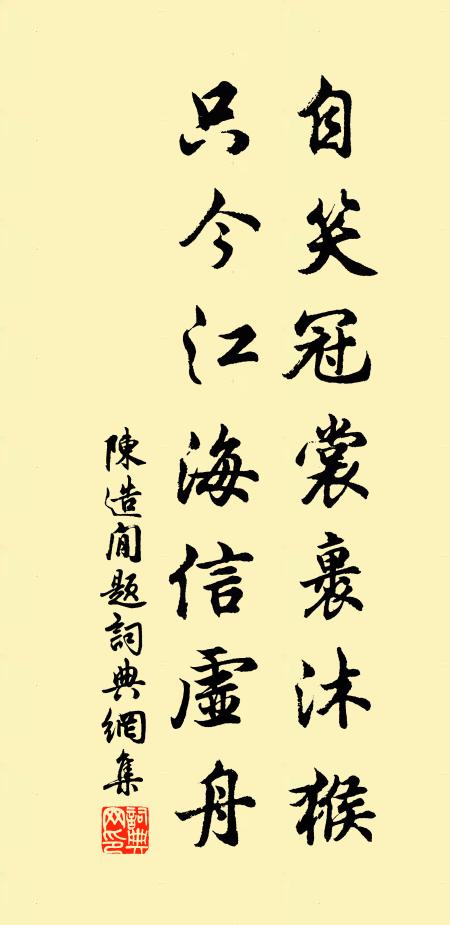 自笑冠裳裹沐猴
只今江海信虛舟
陳造閒題詞典網集
詞典網印